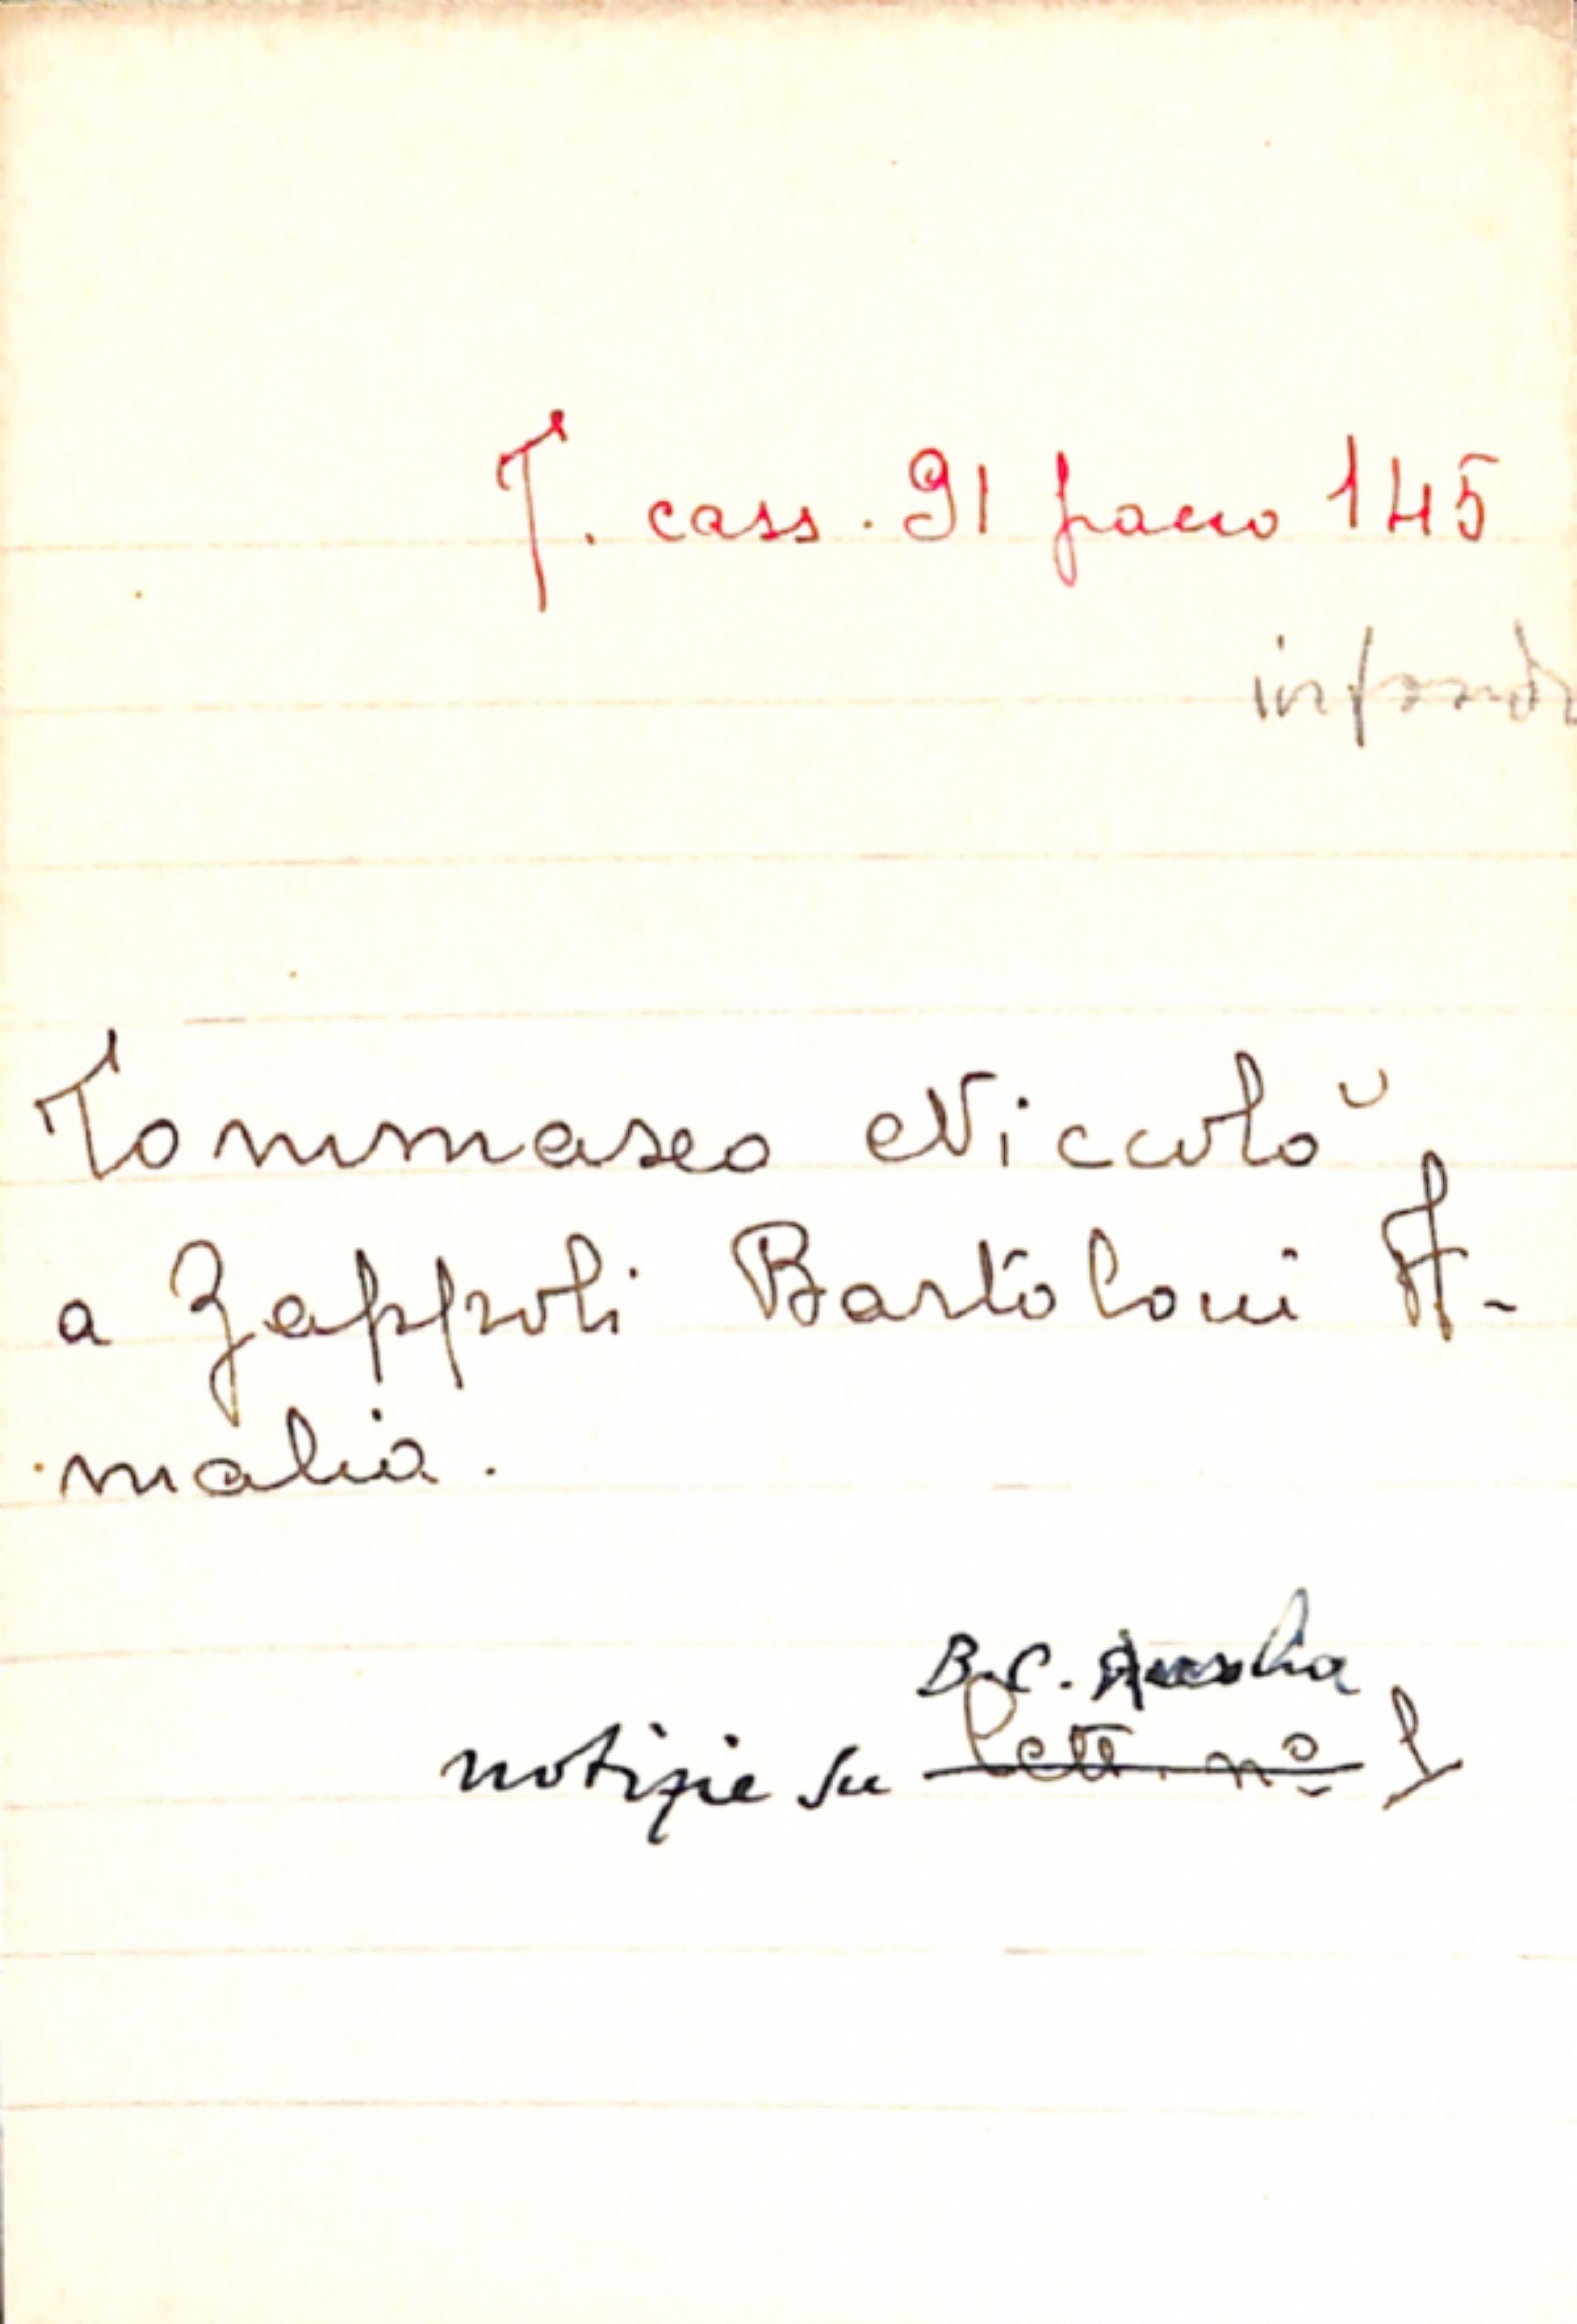 T. cass. 91 pacco 145
in fondo
Tommaseo Niccolò
a Zappoli Bartoloni A-
malia.
B. C.
notizie su lett. nº 1